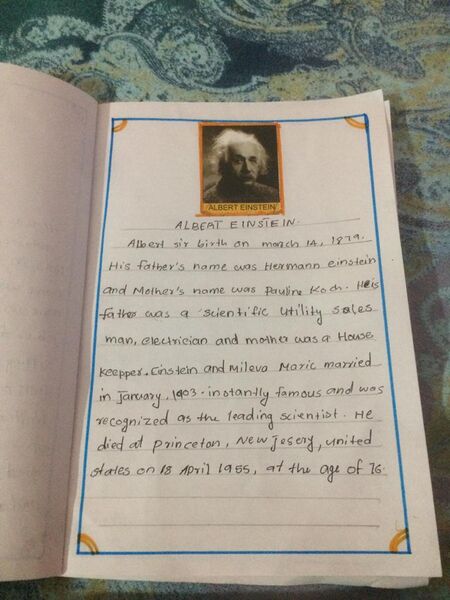 ALBERT EINSTEIN
ALBERT EINSTEIN.
Albert sir birth on march 14, 1879.
His father's name was Hermann einstein
and Mother's name was Pauline Koch. His
father was a scientific Utility sales
man, electrician and mother was a House
keepper. Einstein and Mileva Maric married
in January, 1903. instantly famous and was
recognized as the leading scientist. He
died at princeton, New Jesery, united
states on 18 April 1955, at the age of 76.